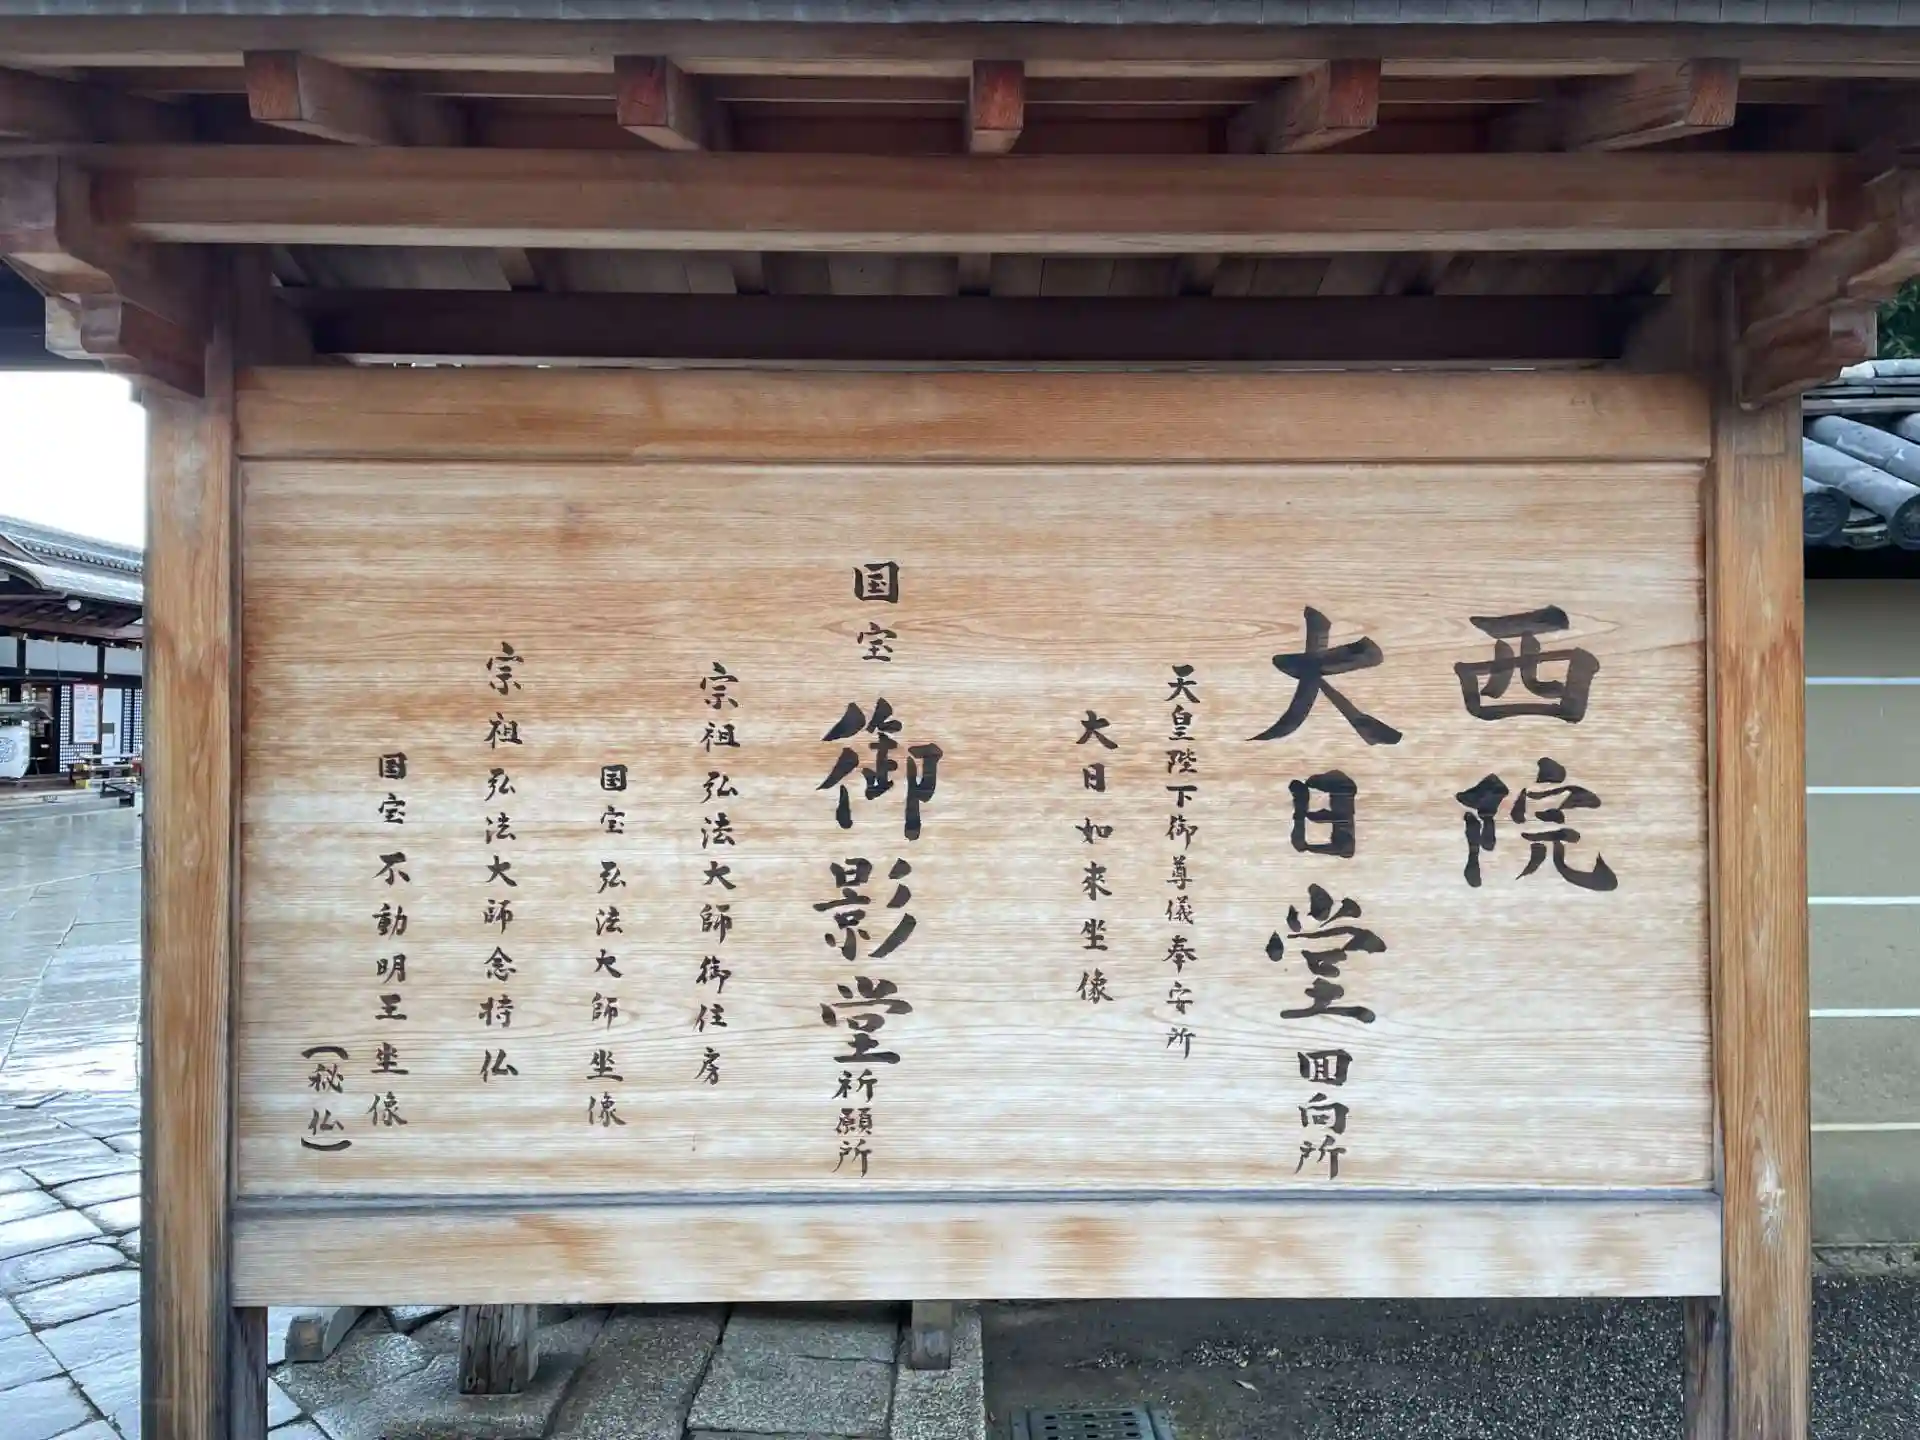 西院
大日堂回向所
天皇陛下御尊儀奉安所
大日如来坐像
国宝 御影堂祈願所
宗祖弘法大師御住房
国宝 弘法大師坐像
宗祖弘法大師念持仏
国宝 不動明王坐像
(秘仏)